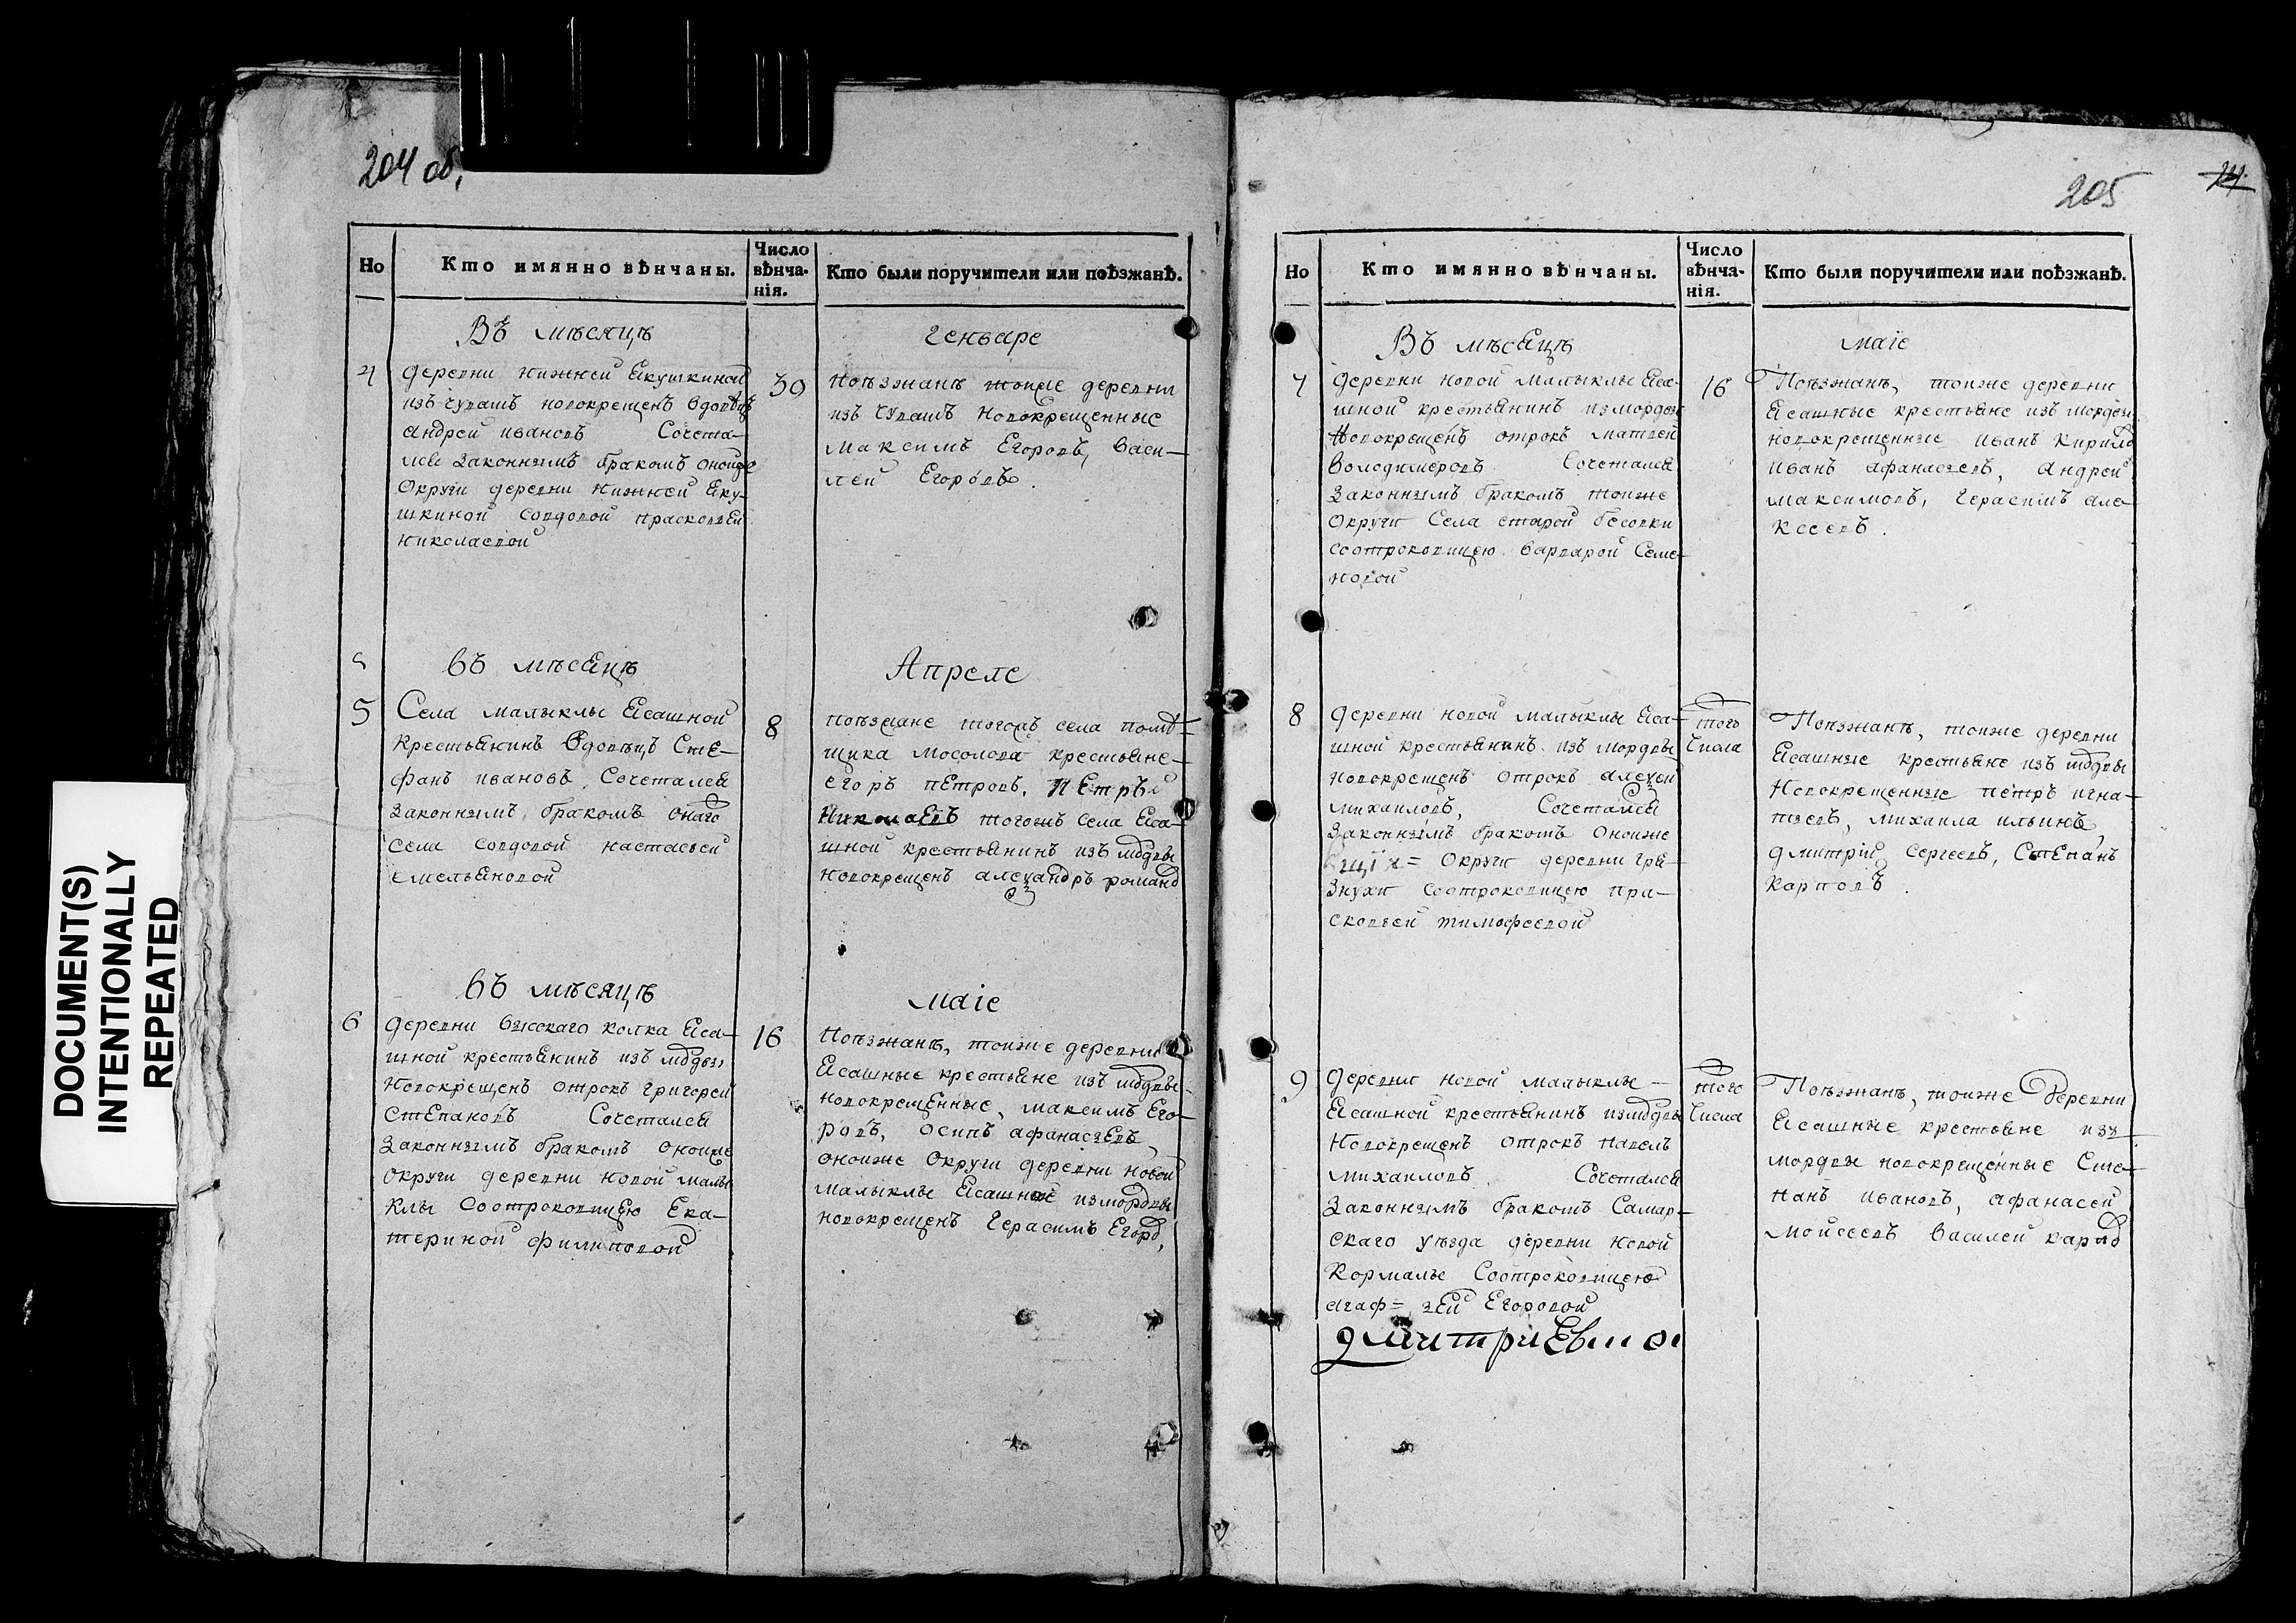 204 об,
Но Кто имянно вѣнчаны. Число вѣнча- нія. Кто были поручители или поѣзжанѣ.
Въ мѣсяцѣ
генваре
4
деревни нижней Якушкиной
изъ чувашъ новокрещенъ вдовецъ
андрей ивановъ Сочета-
лся законнымъ бракомъ оной же
округи деревни нижней Яку-
шкиной совдовой прасковьей
николаевой
30
поѣзжанѣ тоиже деревни
изъ чувашъ новокрещенные
максимъ Егоровъ, васи-
лей Егоровъ.
въ мѣсяцѣ
Апреле
5
Села малыклы ясашной
крестьянинъ вдовецъ Сте-
фанъ ивановъ Сочетался
законнымъ бракомъ онаго
села совдовой настасьей
емельяновой
8
поезжане тогожъ села помѣ-
щика мосолова крестьяне
егоръ петровъ, петръ
николаевъ тогожъ села яса-
шной крестьянинъ изъ мордвы
новокрещенъ александръ романов
въ мѣсяцѣ
маіе
6
деревни высокаго колка яса-
шной крестьянинъ изъ мордвы
новокрещенъ отрокъ григорей
степановъ Сочетался
законнымъ бракомъ оноиже
округи деревни новой малы
клы соотроковицею Ека-
териной филиповой
16
поѣзжанѣ, тоиже деревни
ясашные крестьяне изъ мордвы
новокрещенные, максимъ Его-
ровъ, осипъ афанасьевъ
оноиже округи деревни новой
малыклы ясашной измордвы
новокрещенъ герасимъ Егоров,
205
Но Кто имянно вѣнчаны. Число вѣнча- нія. Кто были поручители или поѣзжанѣ.
Въ мѣсяцѣ
маіе
7
деревни новой малыклы яса-
шной крестьянинъ измордвы
новокрещенъ отрокъ матвей
володимеровъ Сочетался
законнымъ бракомъ тоиже
округи села старой бесовки
соотроковицею варварой Семе-
новой
16
Поѣзжанѣ, тоиже деревни
ясашные крестьяне изъ мордвы
новокрещенные иванъ кирилов
иванъ афанасьевъ, андрей
максимовъ, герасимъ але-
ксеевъ.
8
деревни новой малыклы яса-
шной крестьянинъ изъ мордвы
новокрещенъ отрокъ алексей
михаиловъ, Сочетался
законнымъ бракомъ оноиже
округи деревни гря-
знухи соотроковицею пра-
сковьей тимофеевой
того
числа
Поѣзжанѣ, тоиже деревни
ясашные крестьяне изъ мордвы
новокрещенные петръ игна-
тьевъ, михаила ильинъ,
дмитрій сергеевъ, степанъ
карповъ.
9
деревни новой малыклы
ясашной крестьянинъ измордвы
новокрещенъ отрокъ павелъ
михаиловъ Сочетался
законнымъ бракомъ Самар-
скаго уѣзда деревни новой
кормалы соотроковицею
агаф= ьей Егоровой
того
числа
Поѣзжанѣ, тоиже деревни
ясашные крестьяне изъ
мордвы новокрещенные сте-
панъ ивановъ, афанасей
мойсеевъ василей карпов
DOCUMENT(S)
INTENTIONALLY
REPEATED